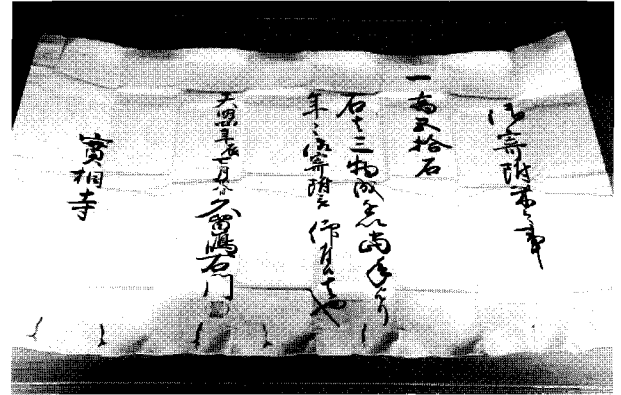 御寄附米之事
一高五拾石
右者三物成を以当年より
年々御寄附仰付
天明年辰七月 久留嶋右門
實相寺